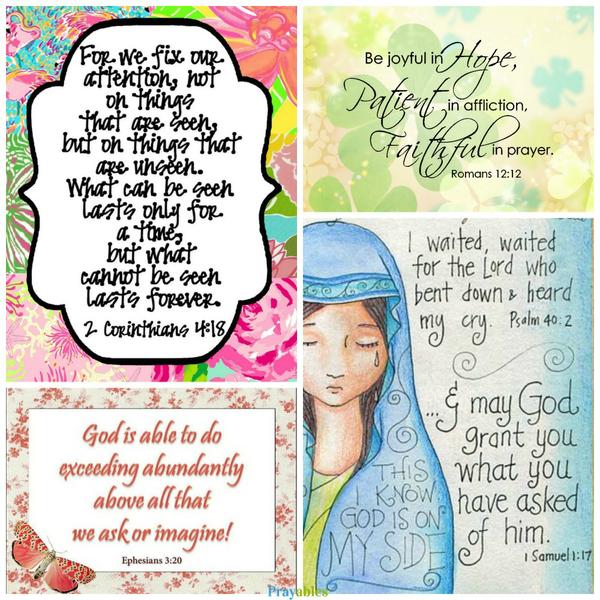 For we fix our
attention, not
on things
that are seen,
but on things that
are unseen.
What can be seen
lasts only for
a time,
but what
cannot be seen
lasts forever.
2 Corinthians 4:18
Be joyful in Hope,
Patient in affliction,
Faithful in prayer.
Romans 12:12
God is able to do
exceeding abundantly
above all that
we ask or imagine!
Ephesians 3:20
I waited, waited
for the Lord who
bent down & heard
my cry. Psalm 40:2
...& may God
grant you
what you
have asked
of him.
1 Samuel 1:17
THIS
I KNOW
GOD IS ON
MY SIDE
Prayables